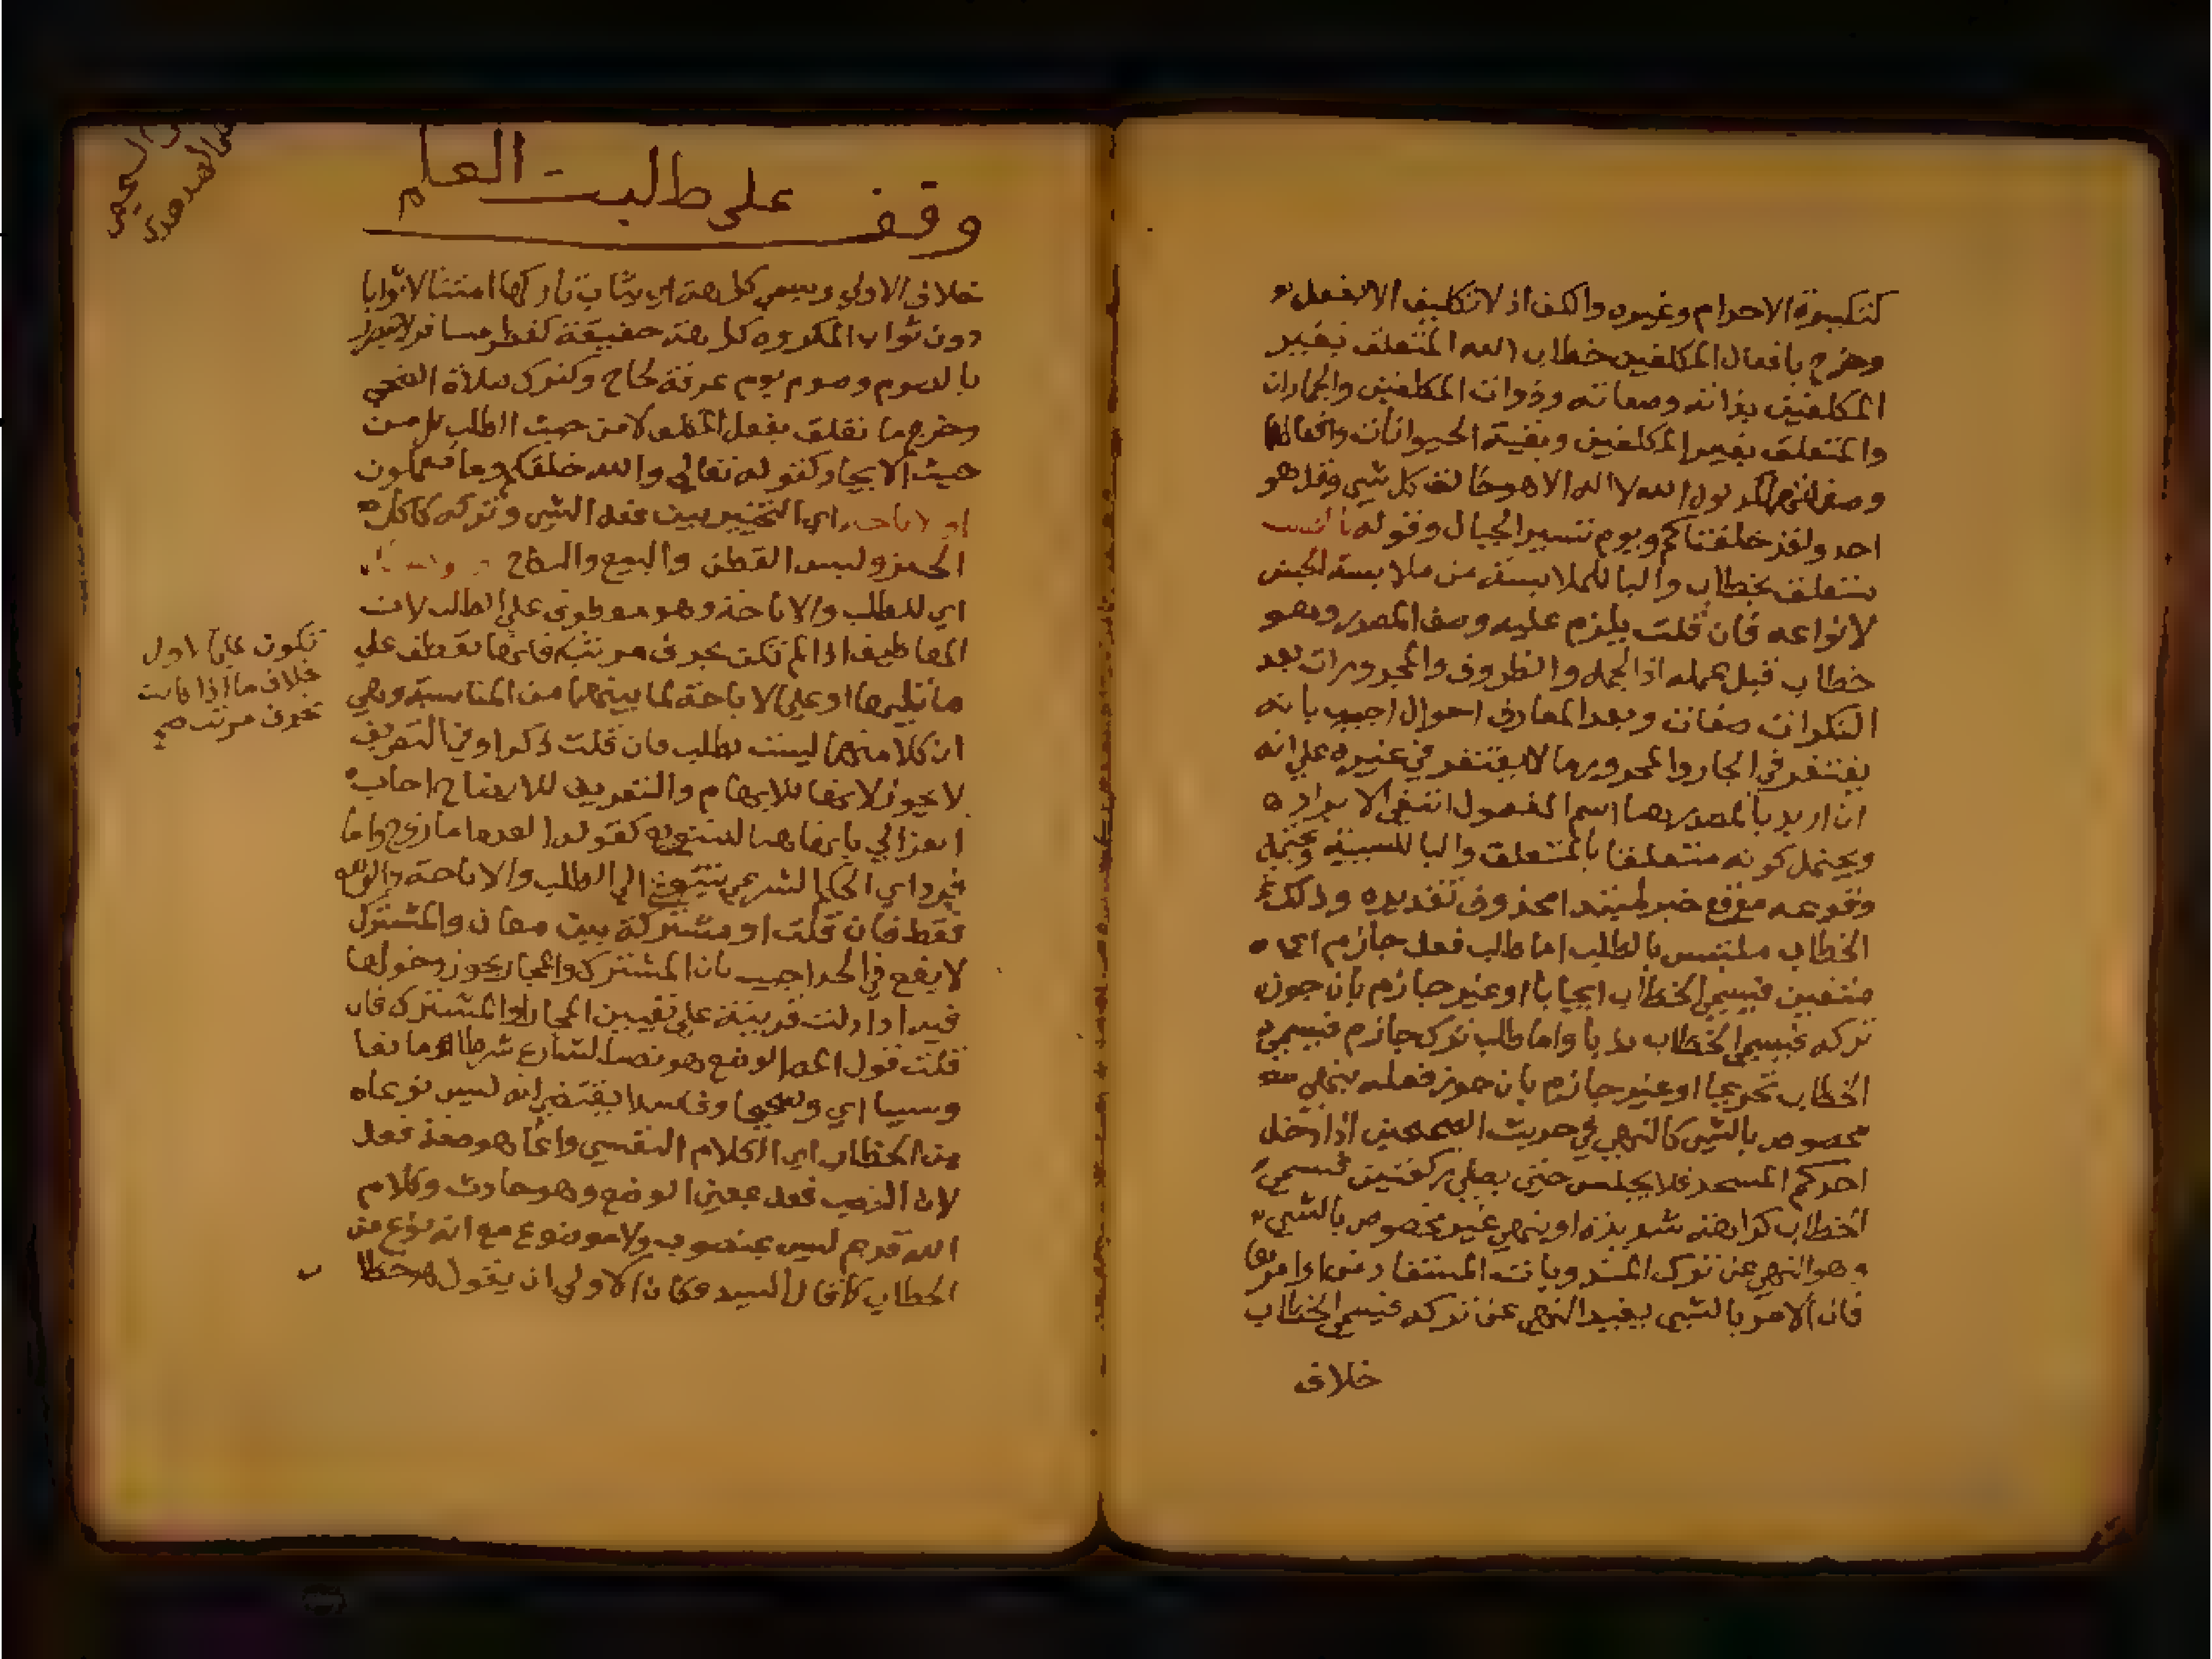 كتكبيرة الاحرام وغيره والكف اذ لا تكليف الا بفعل
وخرج بافعال المكلفين خطاب الله المتعلق بغير
المكلفين بذاته وصفاته وذوات المكلفين والجمادات
والمتعلق بغير المكلفين وبقية الحيوانات وافعالها
الله لا اله الا هو خالق كل شي وقل هو
احد ولقد خلقناكم ويوم نسير الجبال وقوله
متعلق بخطاب والبا للملابسة من ملابسة الجنس
لانواعه فان قلت يلزم عليه وصف المصدر وهو
خطاب قبل عمله اذ الجمل والظروف والمجرورات بعد
النكرات صفات وبعد المعارف احوال اجيب بانه
يغتفر في الجار والمجرور ما لا يغتفر في غيره علي انه
ان اريد بالمصدر هنا اسم المفعول انتفي الايراد
ويحتمل كونه متعلقا بالمتعلق والبا للسببية ويحتمل
وقوعه موقع خبر لمبتدا محذوف تقديره وذلك
الخطاب ملتبس بالطلب اما طلب فعل جازم اي
متعين فيسمي الخطاب ايجابا او غير جازم بان جوز
تركه فيسمي الخطاب ندبا واما طلب ترك جازم فيسمي
الخطاب تحريما او غير جازم بان جوز فعله بنهي
مخصوص بالشي كالنهي في حديث الصحيحين اذا دخل
احدكم المسجد فلا يجلس حتي يصلي ركعتين فيسمي
الخطاب كراهة شديدة او بنهي غير مخصوص بالشي
وهو النهي عن ترك المندوبات المستفاد من اوامرها
فان الامر بالشي يفيد النهي عن تركه فيسمي الخطاب
خلاف
وقف على طالبت العلم
خلاف الاولي ويسمي كراهة اي يثاب تاركها امتثالا ثوابا
دون ثواب المكروه كراهة حقيقة كفطر مسافر
بالصوم وصوم يوم عرفة لحاج وكترك صلاة الضحي
وخرج ما تعلق بفعل المكلف لا من حيث الطلب بل من
حيث الايجاد كقوله تعالي والله خلقكم وما تعملون
او الاباحة اي التخيير بين فعل الشي وتركه كاكل
الخبز ولبس القطن والبيع والنكاح
اي للطلب والاباحة وهو معطوف علي الطلب لان
المعاطيف اذا لم تكن بحرف مرتب فانها تعطف علي
ما تليها او علي الاباحة لما بينهما من المناسبة وهي
ان كلا منهما ليست بطلب فان قلت ذكر او في التعريف
لا يجوز لانها للابهام والتعريف للايضاح اجاب
الغزالي بانها هنا للتنويع كقولك العدد اما زوج واما
فرد اي الحكم الشرعي يتنوع الي الطلب والاباحة والوضع
فقط فان قلت او مشتركة بين معان والمشترك
لا يقع في الحد اجيب بان المشترك والمجاز يجوز دخولها
فيه اذا دلت قرينة علي تعيين المجاز او المشترك فان
قلت قول المص الوضع هو نصب الشارع شرطا او مانعا
وسببا اي وصحيحا وفاسدا يقتضي انه ليس نوعا
من الخطاب اي الكلام النفسي وانما هو صفة فعل
لان النصب فعل بمعني الوضع وهو حادث وكلام
الله قديم ليس بمنصوب ولا موضوع مع انه نوع من
الخطاب كما قال السيد فكان الاولي ان يقول خطاب
تكون علي الاول
بخلاف ما اذا كانت
بحرف مرتب صح